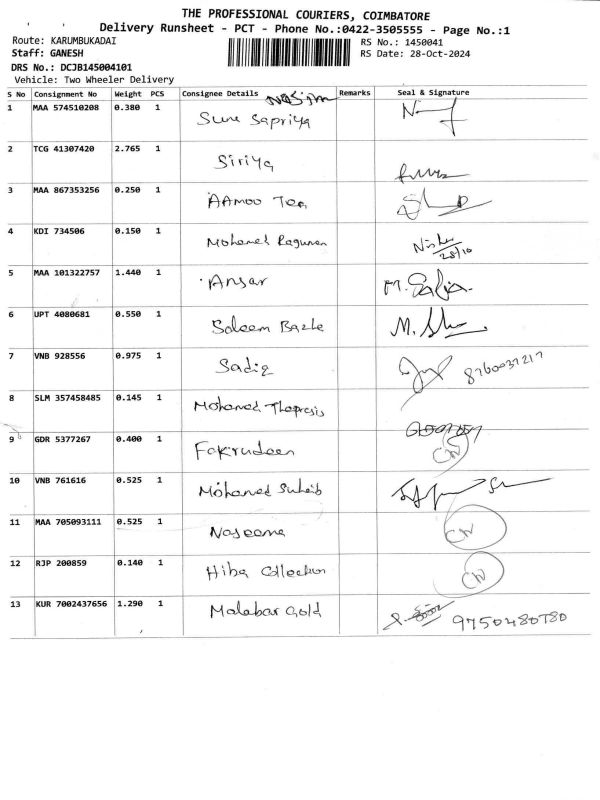 THE PROFESSIONAL COURIERS, COIMBATORE
Delivery Runsheet - PCT - Phone No.:0422-3505555 - Page No.:1
Route: KARUMBUKADAI RS No.: 1450041
Staff: GANESH RS Date: 28-Oct-2024
DRS No.: DCJB145004101
Vehicle: Two Wheeler Delivery
S No Consignment No Weight PCS Consignee Details Remarks Seal & Signature
Nasim
1 MAA 574510208 0.380 1 Sapriya
2 TCG 41307420 2.765 1 Siriya
3 MAA 867353256 0.250 1 AAMOO Tea
4 KDI 734506 0.150 1 Mohamed 28/10
5 MAA 101322757 1.440 1 Ansar
6 UPT 4080681 0.550 1 Saleem
7 VNB 928556 0.975 1 Sadiq 8760037217
8 SLM 357458485 0.145 1 Mohamed
9 GDR 5377267 0.400 1 Fakrudeen CN
10 VNB 761616 0.525 1 Mohamed Suheib
11 MAA 705093111 0.525 1 Naseema CN
12 RJP 200859 0.140 1 Hiba Collection CN
13 KUR 7002437656 1.290 1 Malabar Gold 9750480780